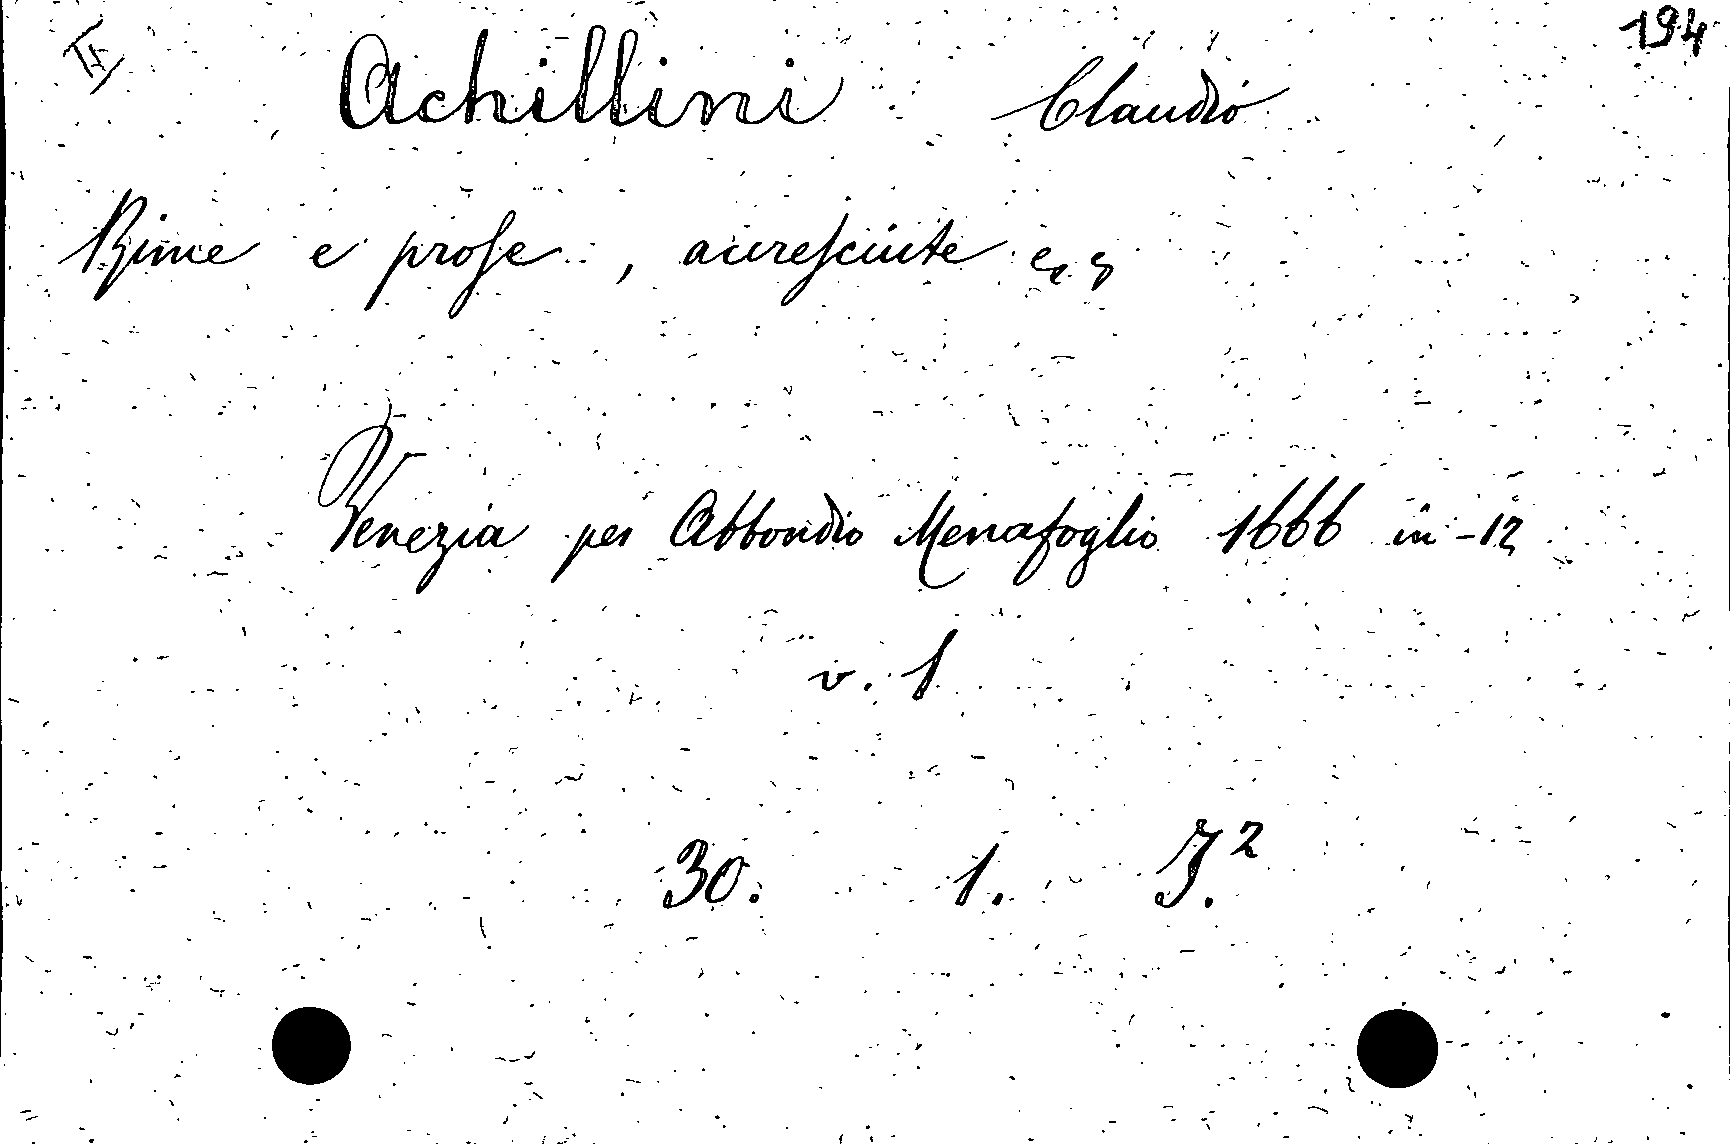 194
Achillini Claudio
Rime e prose, accresciute
Venezia per Abbondio Menafoglio 1666 in-12
v. 1
30. 1. J.²